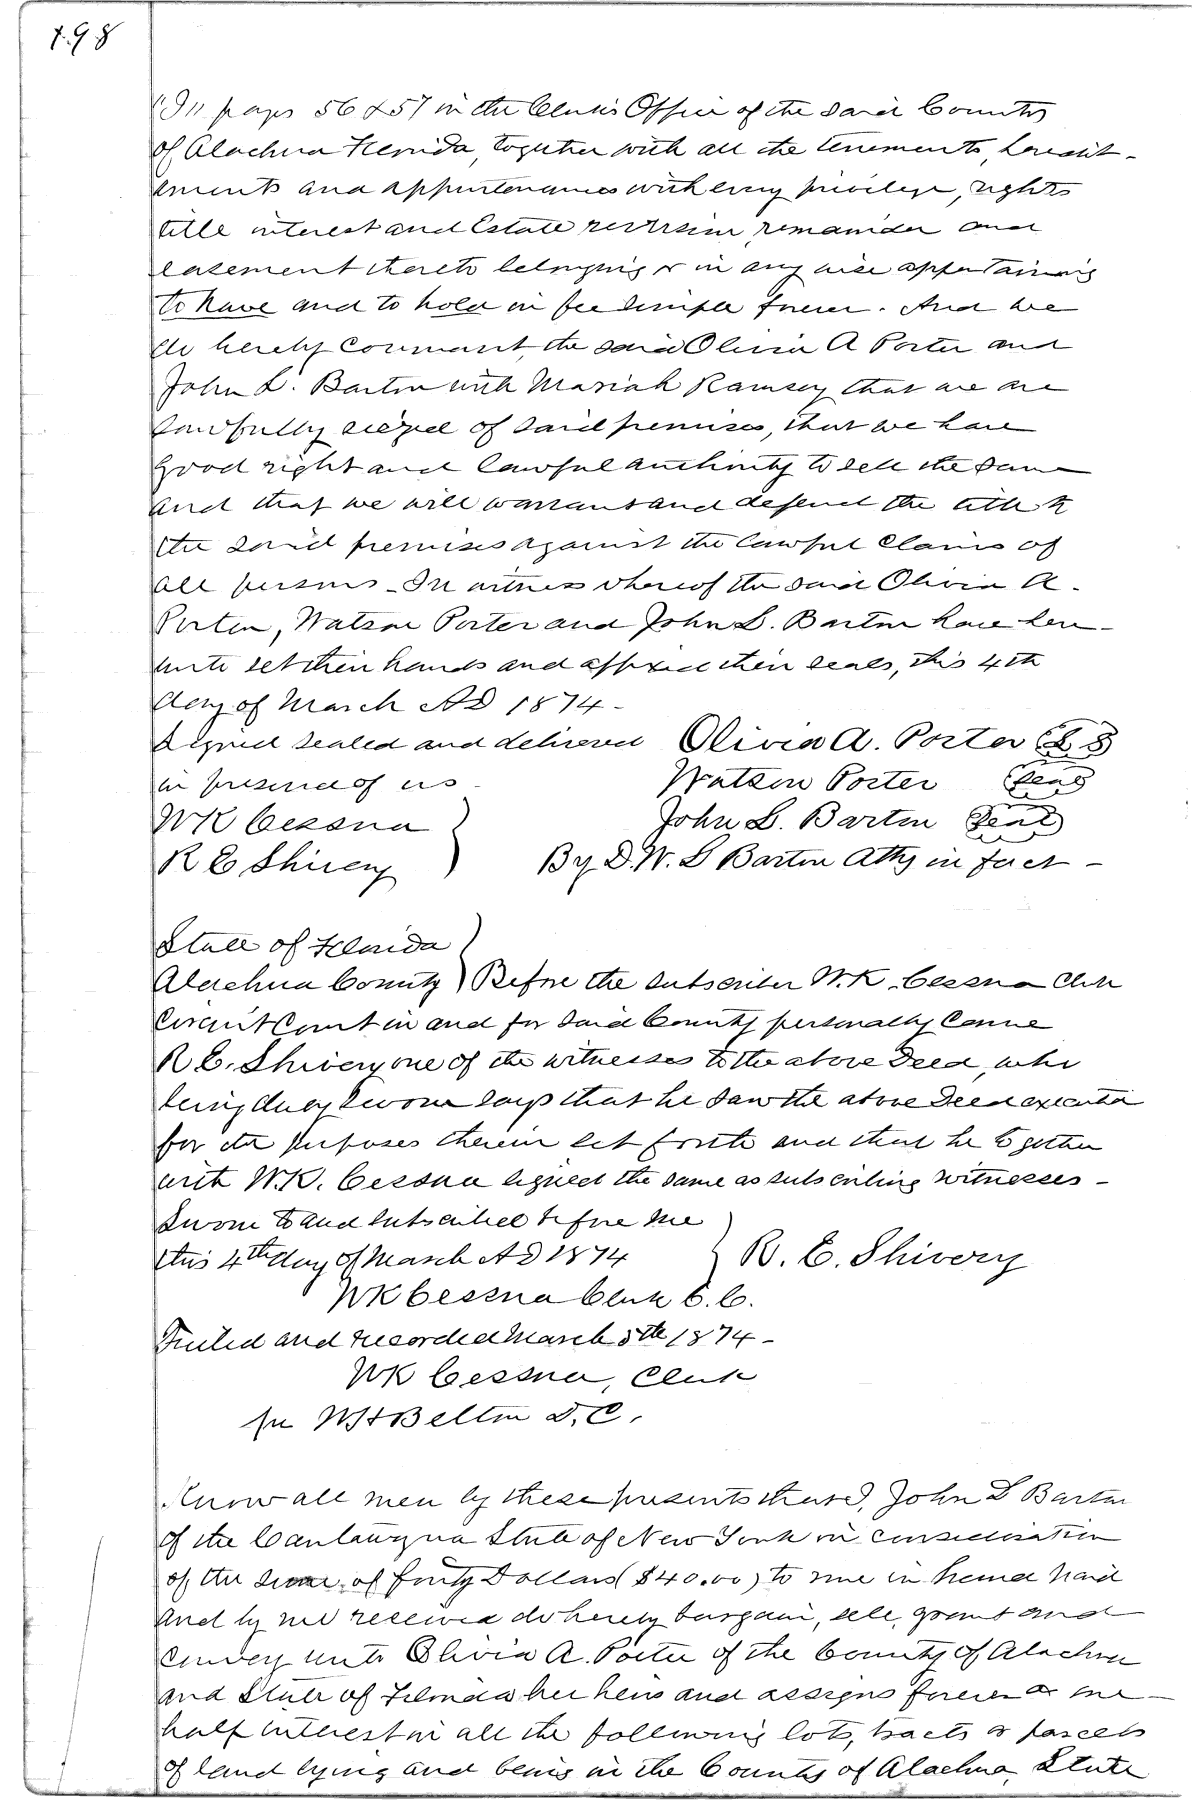 198
"J" pages 56 & 57 in the Clerk's Office of the said County
of Alachua Florida, together with all the tenements, heredit-
aments and appurtenances with every privilege, rights
title interest and Estate reversion, remainder and
easement thereto belonging or in any wise appertaining
to have and to hold in fee simple forever. And we
do hereby covenant, the said Olivia A Porter and
John L. Barton with Mariah Ramsey that we are
lawfully seized of said premises, that we have
good right and lawful authority to sell the same
and that we will warrant and defend the title to
the said premises against the lawful claims of
all persons - In witness whereof the said Olivia A.
Porter, Watson Porter and John L. Barton have here-
unto set their hands and affixed their seals, this 4th
day of March AD 1874 -
Signed sealed and delivered Olivia A. Porter L S
in presence of us Watson Porter Seal
WK Cessna John L. Barton Seal
R E Shivery By D. W. L Barton Atty in fact -
State of Florida
Alachua County Before the subscriber W. K. Cessna Clerk
Circuit Court in and for said County personally Came
R E. Shivery one of the witnesses to the above Deed, who
being duly sworn says that he saw the above Deed executed
for the purposes therein set forth and that he together
with W. K. Cessna signed the same as subscribing witnesses -
Sworn to and subscribed before me
this 4th day of March AD 1874 R. E. Shivery
WK Cessna Clerk C. C.
Filed and recorded March 5th 1874 -
WK Cessna, Clerk
per W H Belton D. C.
Know all men by these presents that I, John L Barton
of the State of New York in consideration
of the sum of forty Dollars ($40.00) to me in hand paid
and by me received do hereby bargain, sell, grant and
convey unto Olivia A. Porter of the County of Alachua
and State of Florida her heirs and assigns forever a one-
half interest in all the following lots, tracts or parcels
of land lying and being in the County of Alachua, State